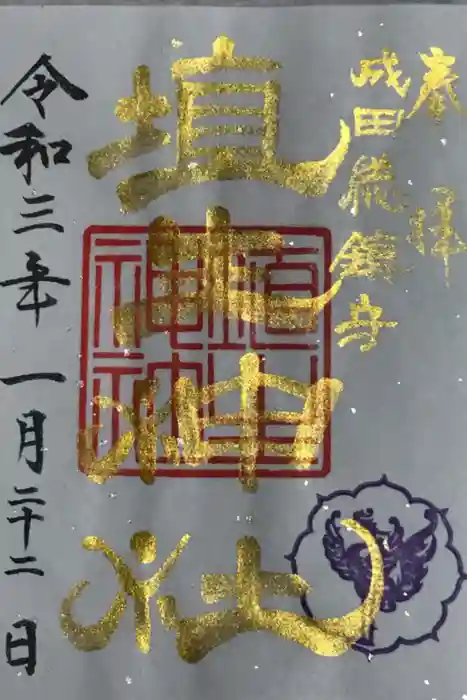 奉拝
成田総鎮守
埴生神社
埴生
神社
令和三年一月二十二日